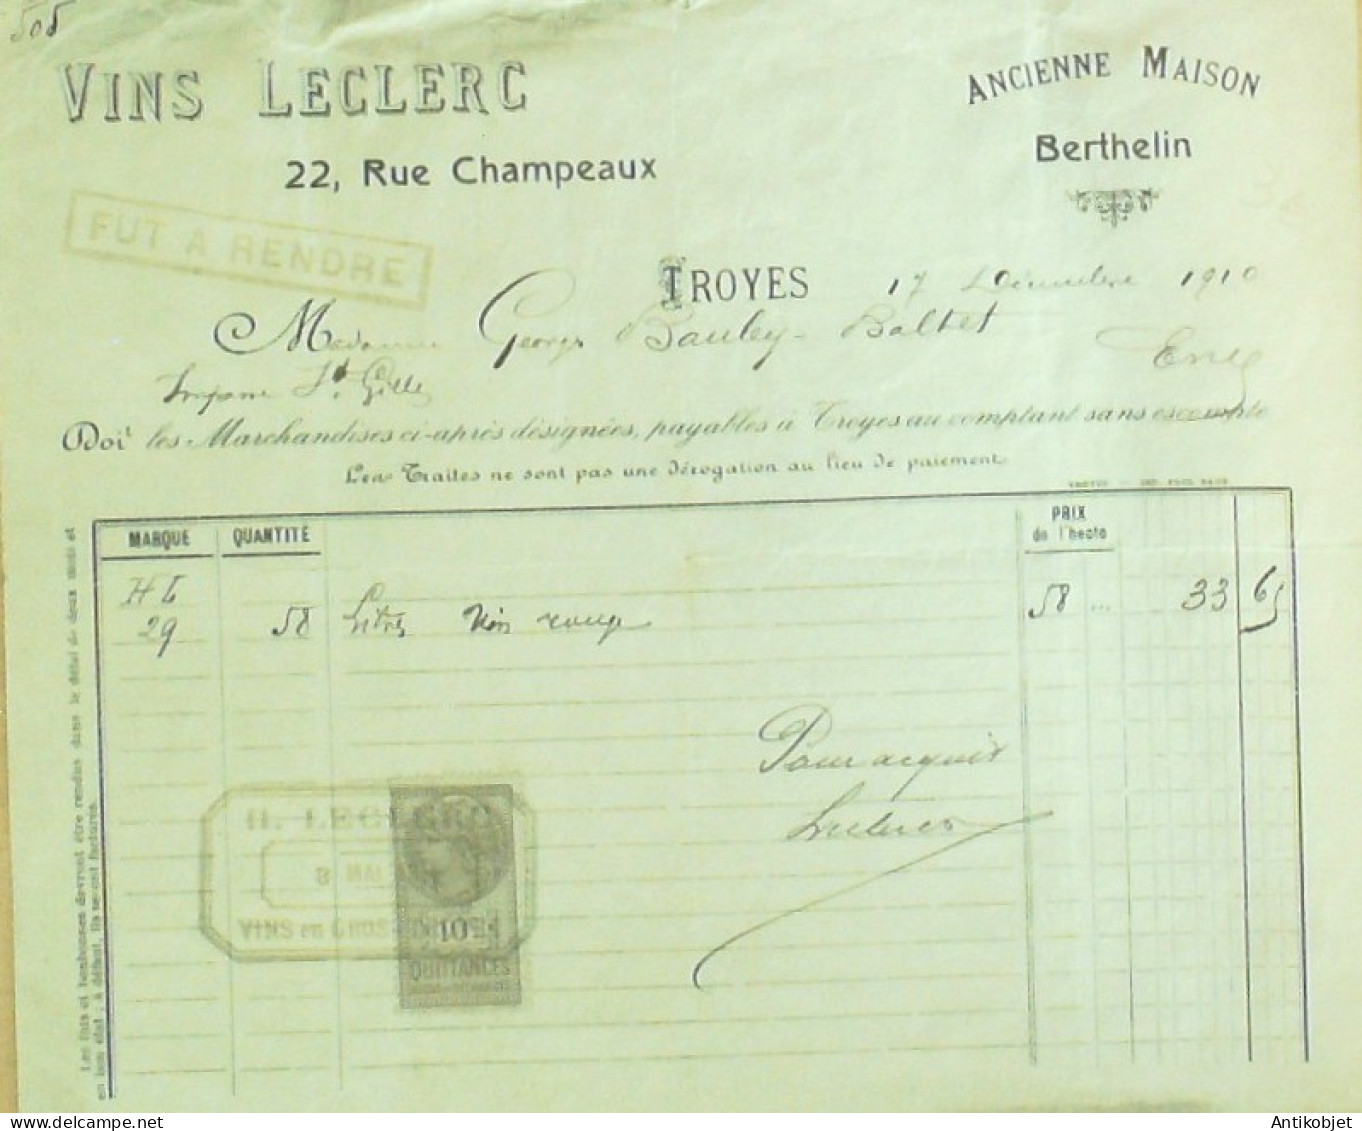 505
VINS LECLERC
22, Rue Champeaux
ANCIENNE MAISON
Berthelin
FUT A RENDRE
TROYES 17 Décembre 1910
Madame Georges Bauley-Baltet
St. Gilles
Doit les Marchandises ci-après désignées, payables à Troyes au comptant sans escompte
Les Traites ne sont pas une dérogation au lieu de paiement
MARQUE QUANTITÉ PRIX de l'hecto
HL
29 58 Litres Vin rouge 58 ... 33 65
Pour acquit
Leclerc
H. LECLERC
8 MAI
VINS en GROS
QUITTANCES
Les fûts et bonbonnes devront être rendus dans le délai de deux mois et
en bon état ; à défaut, ils seront facturés.
Antikobjet
delcampe.net